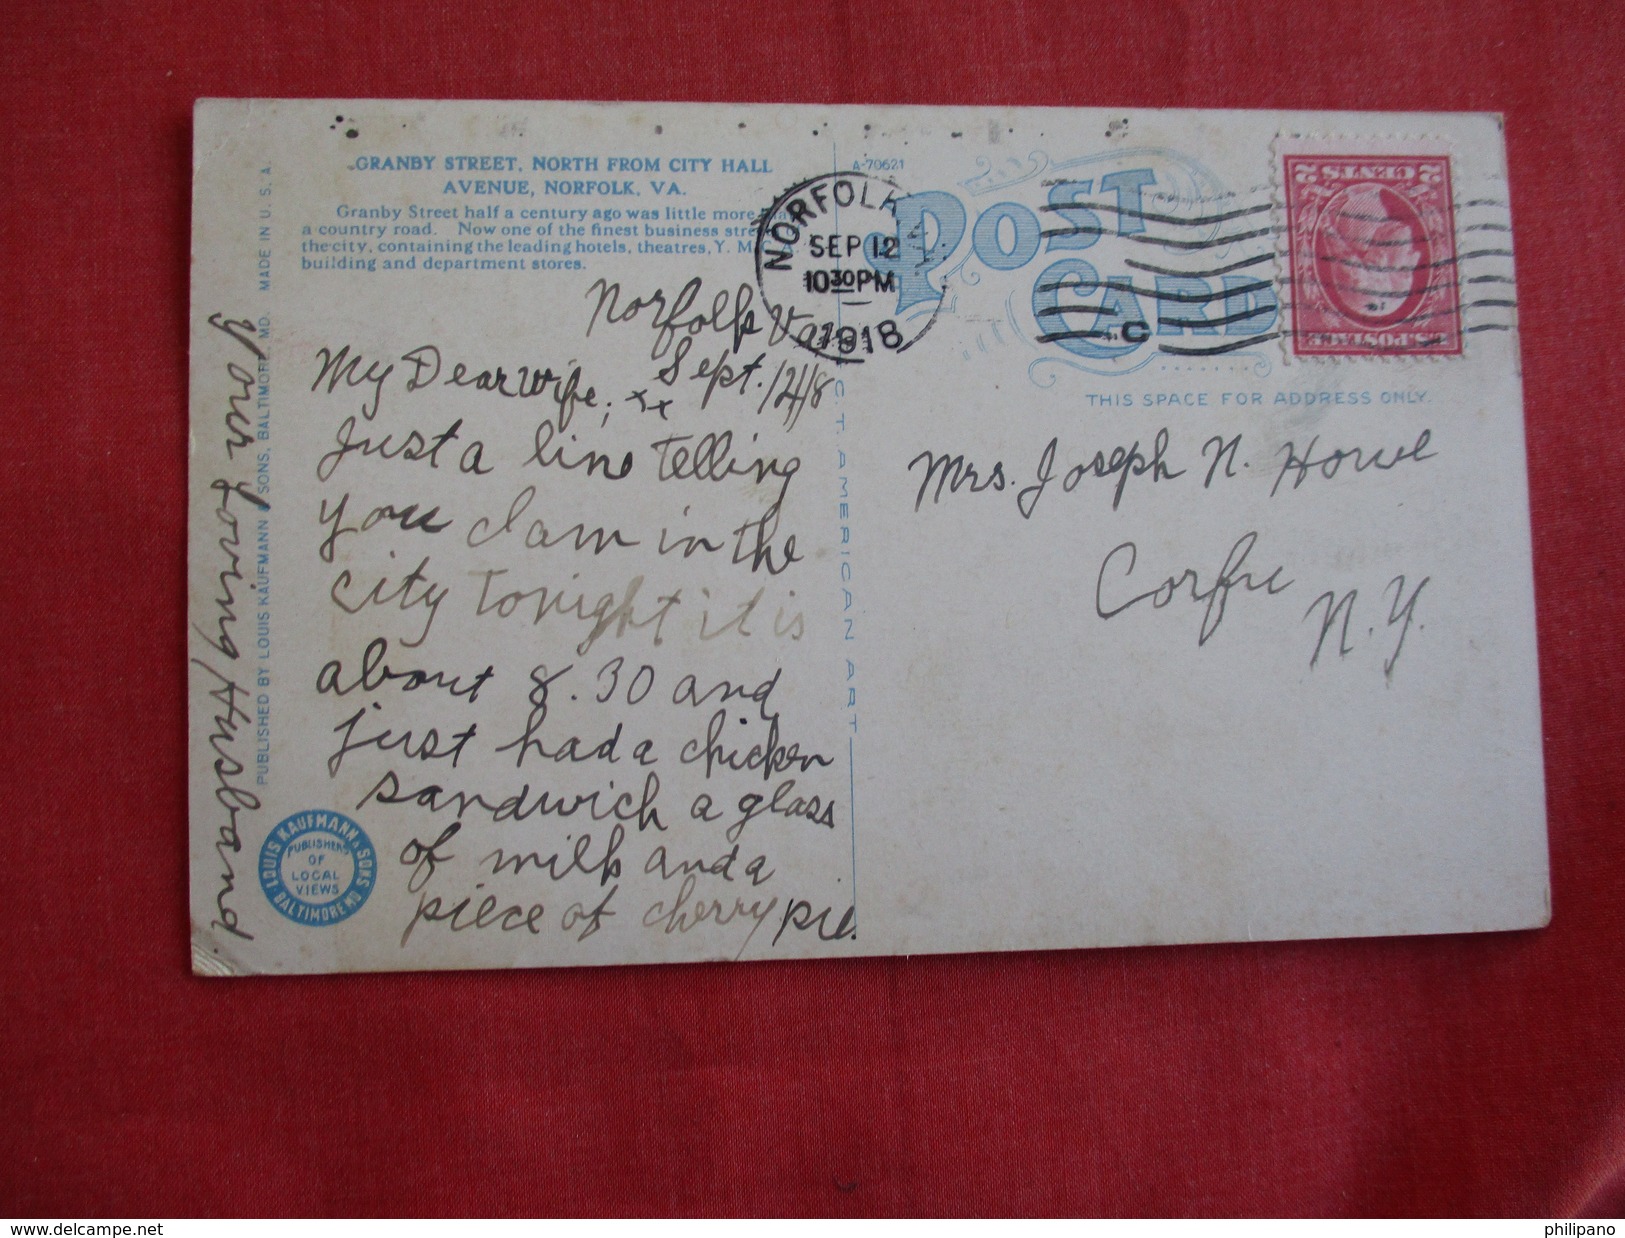 GRANBY STREET, NORTH FROM CITY HALL
AVENUE, NORFOLK, VA.
Granby Street half a century ago was little more
a country road. Now one of the finest business
the city, containing the leading hotels, theatres, Y. M. C. A.
building and department stores.
MADE IN U. S. A.
PUBLISHED BY LOUIS KAUFMANN & SONS, BALTIMORE, MD.
LOUIS KAUFMANN & SONS
BALTIMORE MD
PUBLISHERS
OF
LOCAL
VIEWS
Norfolk Va.
Sept. 12/18
My Dear Wife; xxx
Just a line telling
you I am in the
city tonight it is
about 8.30 and
just had a chicken
sandwich a glass
of milk and a
piece of cherry pie.
Your Loving Husband.
C. T. AMERICAN ART
A-70621
POST
CARD
NORFOLK
SEP 12
10 30 PM
1918
C
2 CENTS 2
U.S. POSTAGE
THIS SPACE FOR ADDRESS ONLY.
Mrs. Joseph N. Howe
Corfu
N.Y.
http://www.delcampe.net
philipano